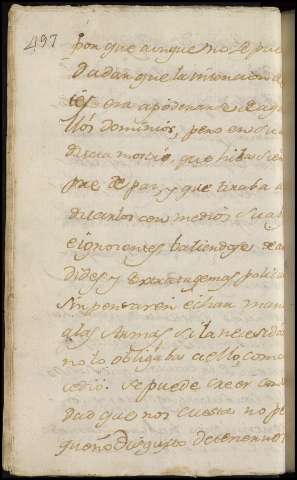 497
por que aunque no se pue
dudar que la intencion de
tes era apoderarse de aq
llos dominios, pero en su
que hita siem
pre de paz, y que tiraba a
con medios suav
e ignorentes batiendose de ar
dides y extratagemas politic
sin pensar en echar man
a las Armas si la necesidad
no lo obligaba a ello, como
cedio. Se puede creer con
dad que nos cuesta no pe
queño disgusto detenernos